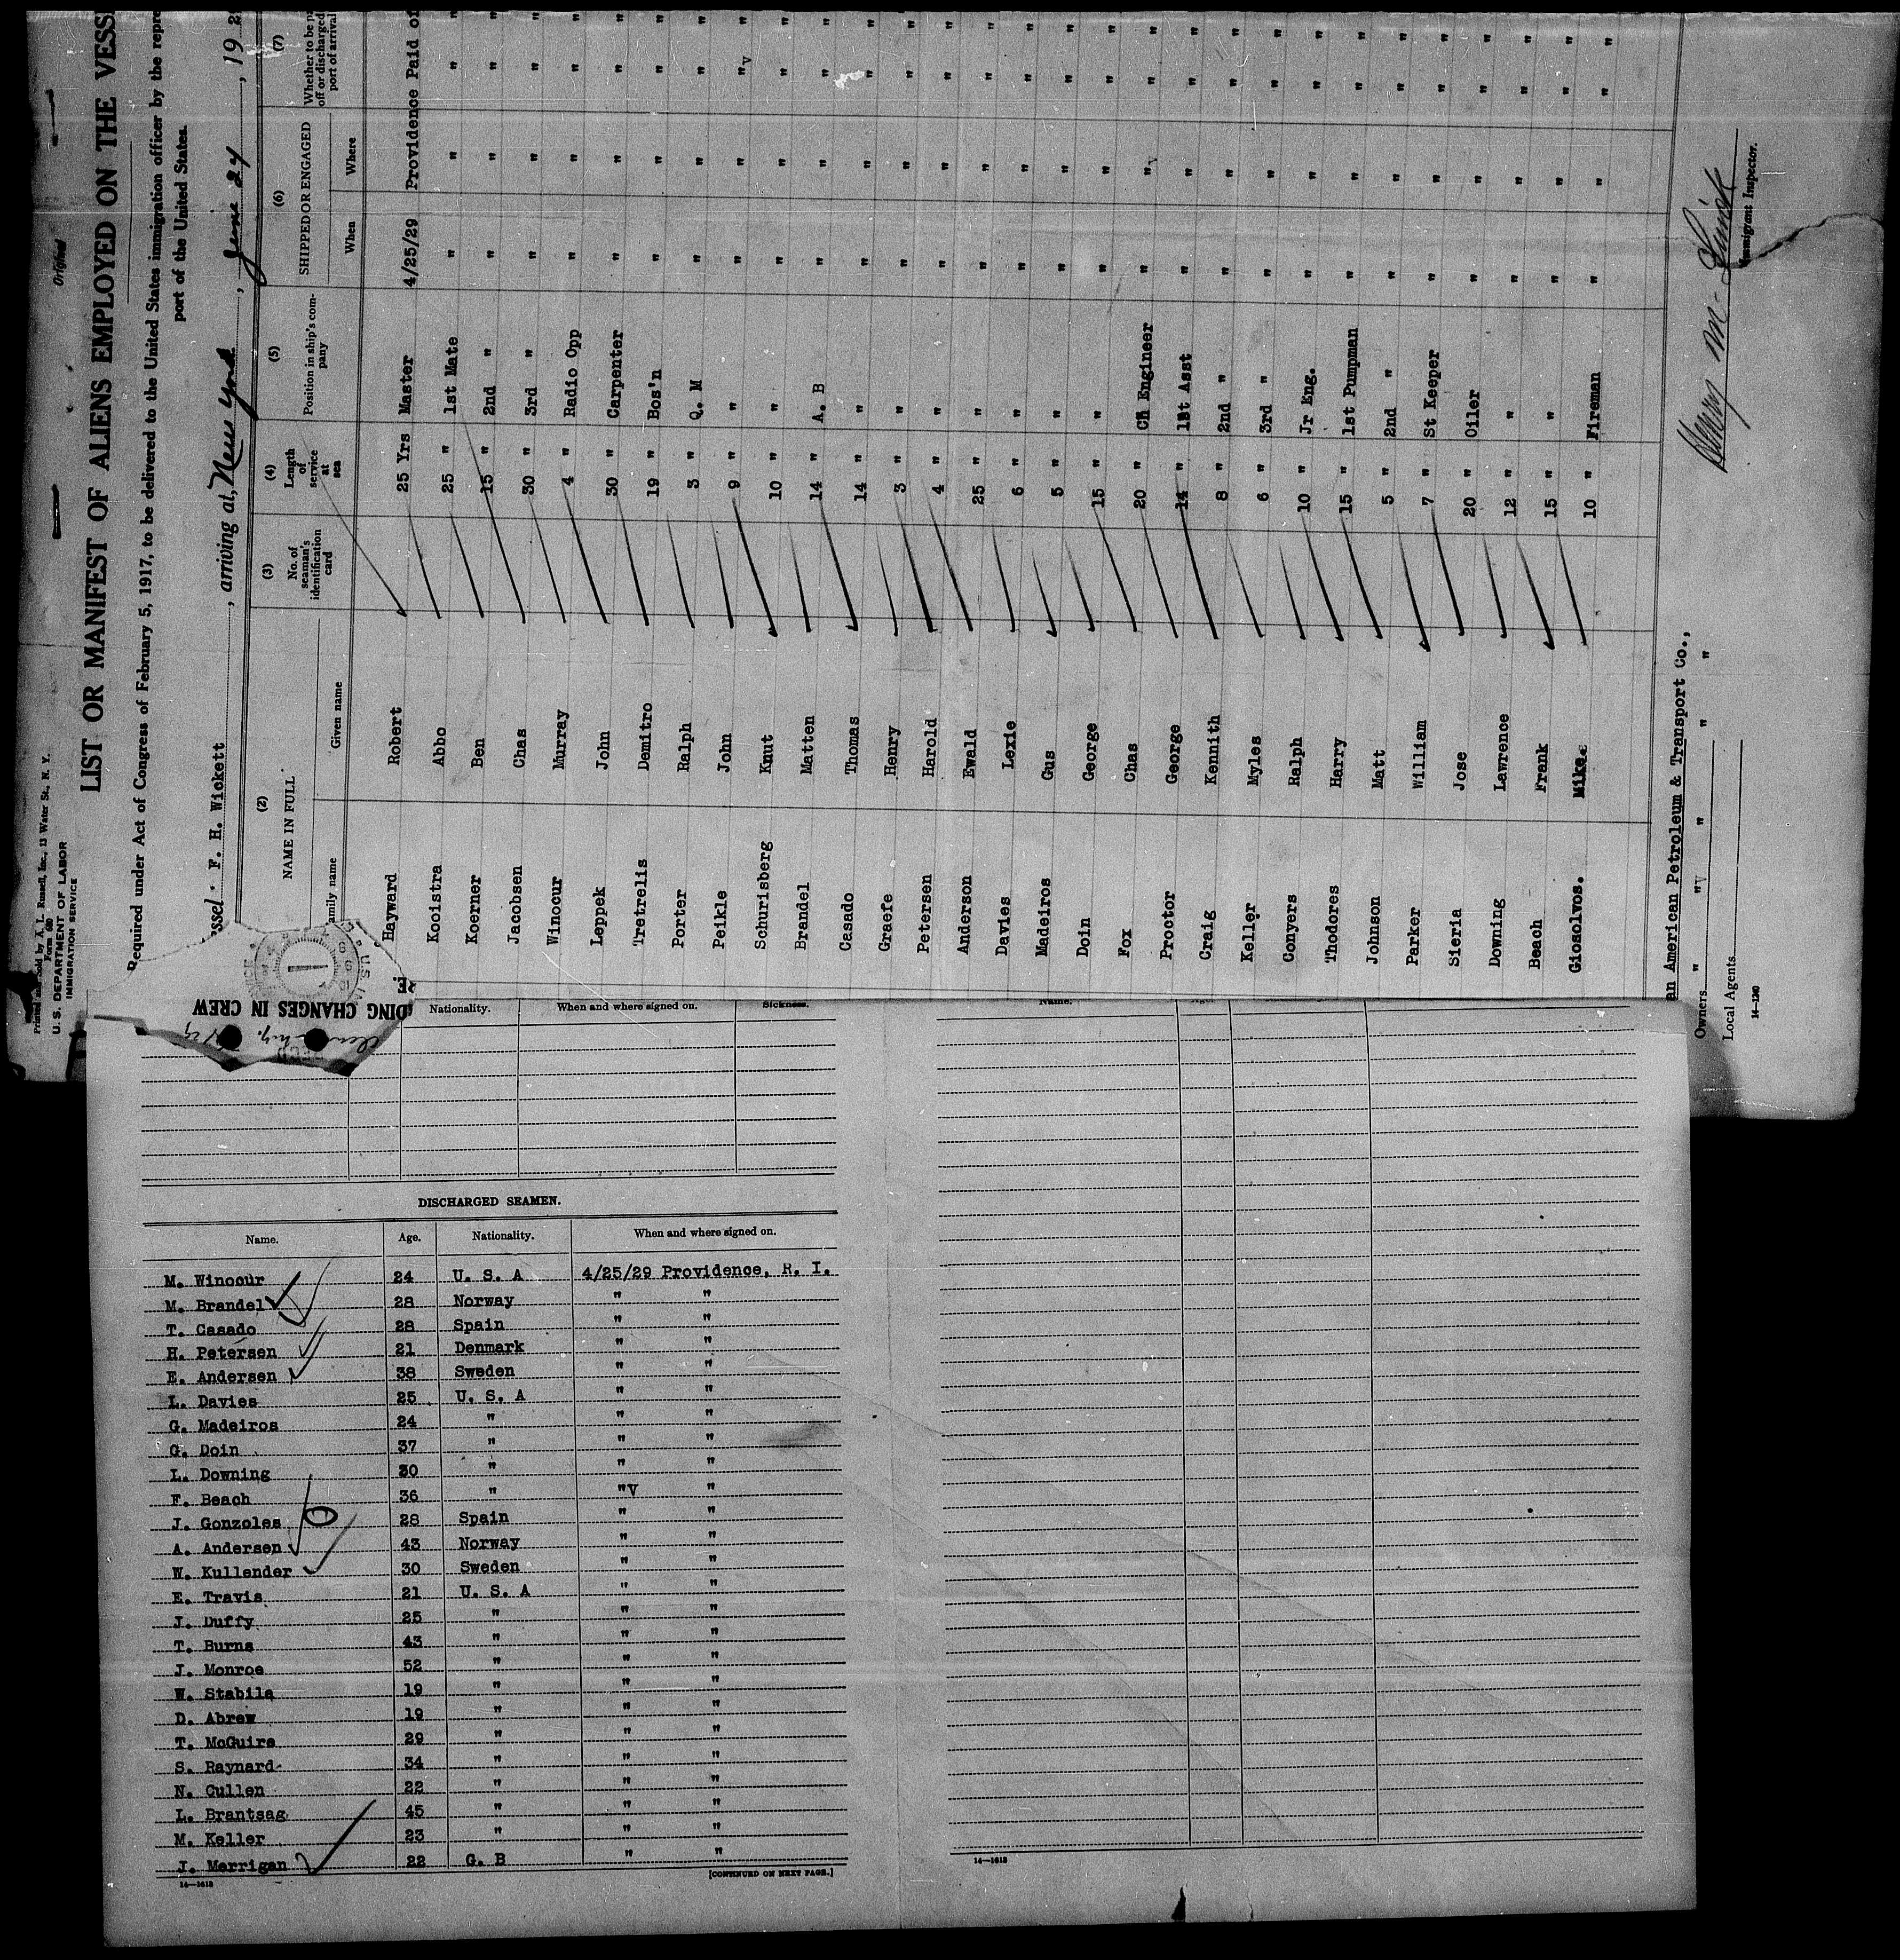 Original
Printed and Sold by A. L. Russell, Inc., 13 Water St., N. Y.
Form 680
U. S. DEPARTMENT OF LABOR
IMMIGRATION SERVICE
LIST OR MANIFEST OF ALIENS EMPLOYED ON THE VESS
Required under Act of Congress of February 5, 1917, to be delivered to the United States immigration officer by the repre
port of the United States.
ssel F. H. Wickett, arriving at New York, June 24, 19 2
(2) (3) (4) (5) (6) (7)
NAME IN FULL
Family name Given name
No. of seaman's identification card
Length of service at sea
Position in ship's company
SHIPPED OR ENGAGED
When Where
Whether to be p
off or discharged
port of arrival
Hayward Robert 25 Yrs Master 4/25/29 Providence Paid of
Kooistra Abbo 25 " 1st Mate " " " "
Koerner Ben 15 " 2nd " " " " "
Jacobsen Chas 30 " 3rd " " " " "
Winocur Murray 4 " Radio Opp " " " "
Leppek John 30 " Carpenter " " " "
Tretrelis Demitro 19 " Bos'n " " " "
Porter Ralph 3 " Q. M " " " "
Peikle John 9 " " " " "v "
Schurisberg Knut 10 " " " " " "
Brandel Matten 14 " A. B " " " "
Casado Thomas 14 " " " " " "
Graefe Henry 3 " " " " " "
Petersen Harold 4 " " " " " "
Anderson Ewald 25 " " " " " "
Davies Lexie 6 " " " " " "
Madeiros Gus 5 " " " " " "
Doin George 15 " " " " " "
Fox Chas 20 " Ch Engineer " " " "
Proctor George 14 " 1st Asst " " " "
Craig Kennith 8 " 2nd " " " " "
Keller Myles 6 " 3rd " " " " "
Conyers Ralph 10 " Jr Eng. " " " "
Thodores Harry 15 " 1st Pumpman " " " "
Johnson Matt 5 " 2nd " " " " "
Parker William 7 " St Keeper " " " "
Sieria Jose 20 " Oiler " " " "
Downing Lawrence 12 " " " " " "
Beach Frank 15 " " " " " "
Giosolvos. Mike 10 " Fireman " " " "
an American Petroleum & Transport Co.,
Owners " "v " " "
Local Agents
14—1240
Immigrant Inspector.
DING CHANGES IN CREW
Nationality. When and where signed on. Sickness. Name.
DISCHARGED SEAMEN.
Name. Age. Nationality. When and where signed on.
M. Winocur 24 U. S. A 4/25/29 Providence, R. I.
M. Brandel 28 Norway " "
T. Casado 28 Spain " "
H. Petersen 21 Denmark " "
E. Andersen 38 Sweden " "
L. Davies 25 U. S. A " "
G. Madeiros 24 " " "
G. Doin 37 " " "
L. Downing 30 " " "
F. Beach 36 " "V "
J. Gonzoles 28 Spain " "
A. Andersen 43 Norway " "
W. Kullender 30 Sweden " "
E. Travis 21 U. S. A " "
J. Duffy 25 " " "
T. Burns 43 " " "
J. Monroe 52 " " "
W. Stabila 19 " " "
D. Abrew 19 " " "
T. McGuire 29 " " "
S. Raynard 34 " " "
N. Cullen 22 " " "
L. Brantsag 45 " " "
M. Keller 23 " " "
J. Merrigan 22 G. B " "
14—1613
[CONTINUED ON NEXT PAGE.]
14—1613